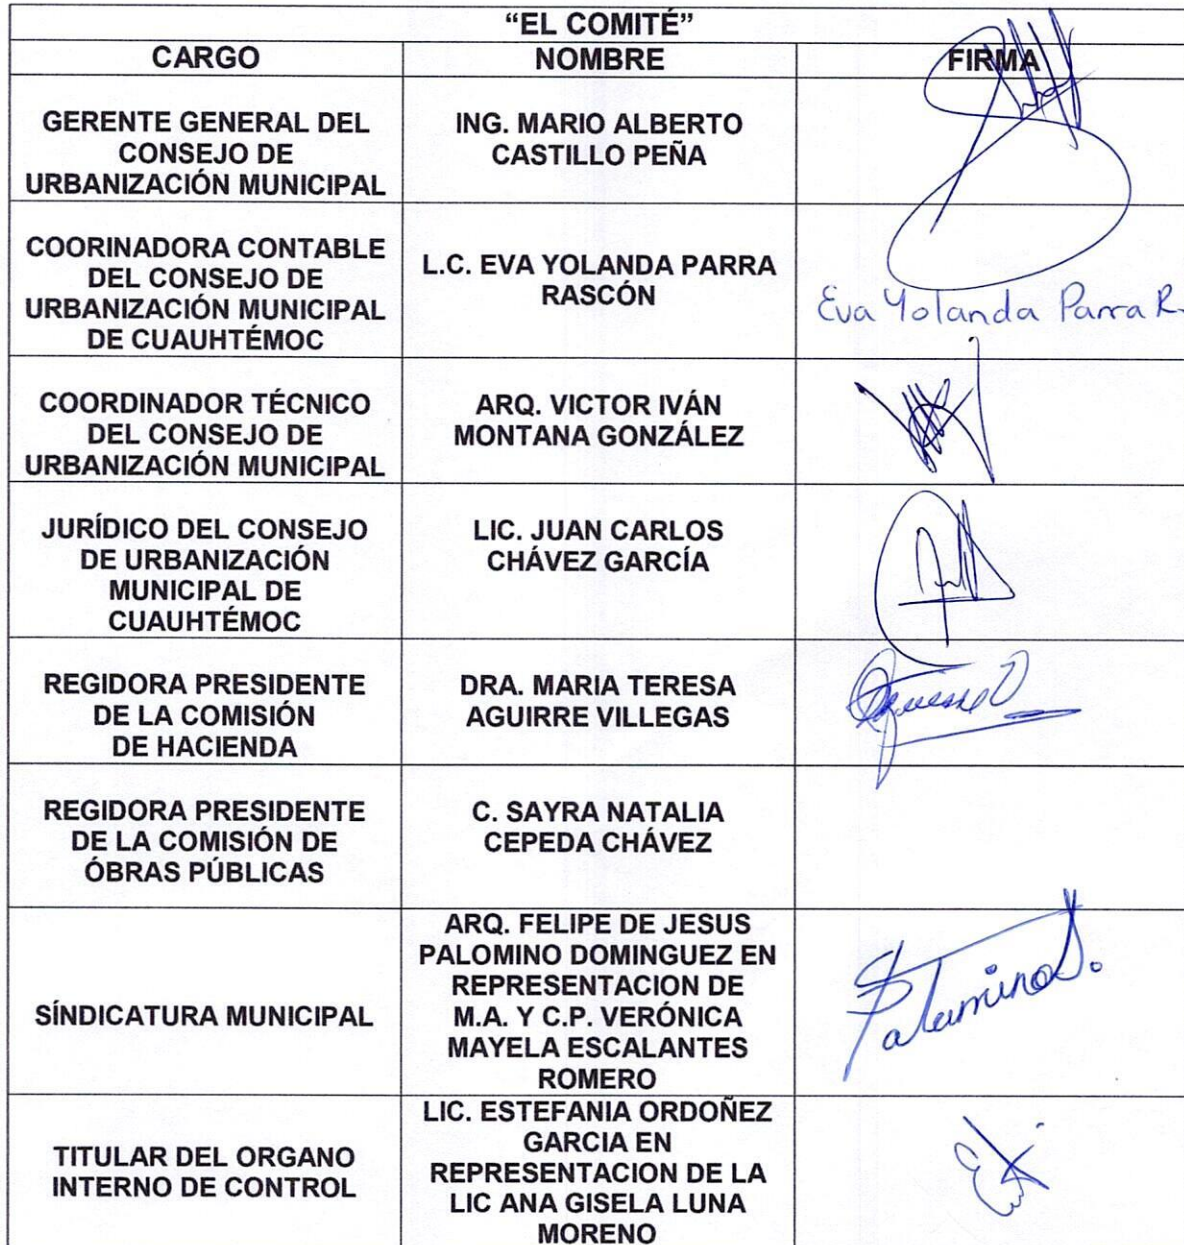 “EL COMITÉ”
CARGO NOMBRE FIRMA
GERENTE GENERAL DEL
CONSEJO DE
URBANIZACIÓN MUNICIPAL
ING. MARIO ALBERTO
CASTILLO PEÑA
COORINADORA CONTABLE
DEL CONSEJO DE
URBANIZACIÓN MUNICIPAL
DE CUAUHTÉMOC
L.C. EVA YOLANDA PARRA
RASCÓN
Eva Yolanda Parra R.
COORDINADOR TÉCNICO
DEL CONSEJO DE
URBANIZACIÓN MUNICIPAL
ARQ. VICTOR IVÁN
MONTANA GONZÁLEZ
JURÍDICO DEL CONSEJO
DE URBANIZACIÓN
MUNICIPAL DE
CUAUHTÉMOC
LIC. JUAN CARLOS
CHÁVEZ GARCÍA
REGIDORA PRESIDENTE
DE LA COMISIÓN
DE HACIENDA
DRA. MARIA TERESA
AGUIRRE VILLEGAS
REGIDORA PRESIDENTE
DE LA COMISIÓN DE
ÓBRAS PÚBLICAS
C. SAYRA NATALIA
CEPEDA CHÁVEZ
SÍNDICATURA MUNICIPAL
ARQ. FELIPE DE JESUS
PALOMINO DOMINGUEZ EN
REPRESENTACION DE
M.A. Y C.P. VERÓNICA
MAYELA ESCALANTES
ROMERO
Palomino D.
TITULAR DEL ORGANO
INTERNO DE CONTROL
LIC. ESTEFANIA ORDOÑEZ
GARCIA EN
REPRESENTACION DE LA
LIC ANA GISELA LUNA
MORENO